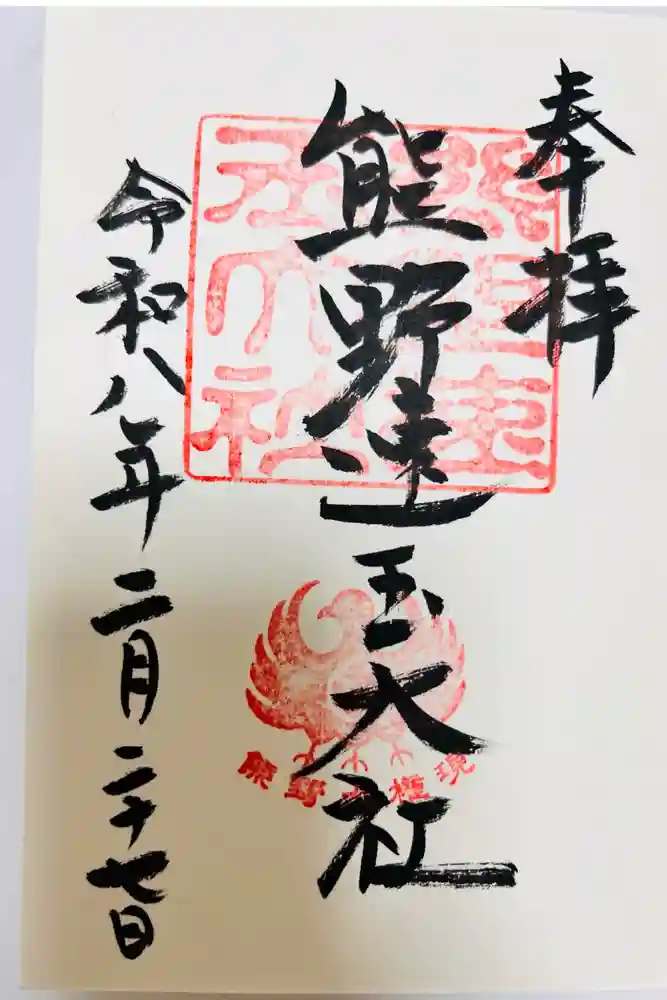 奉拝
熊野速玉大社
令和八年二月二十七日
熊野大権現